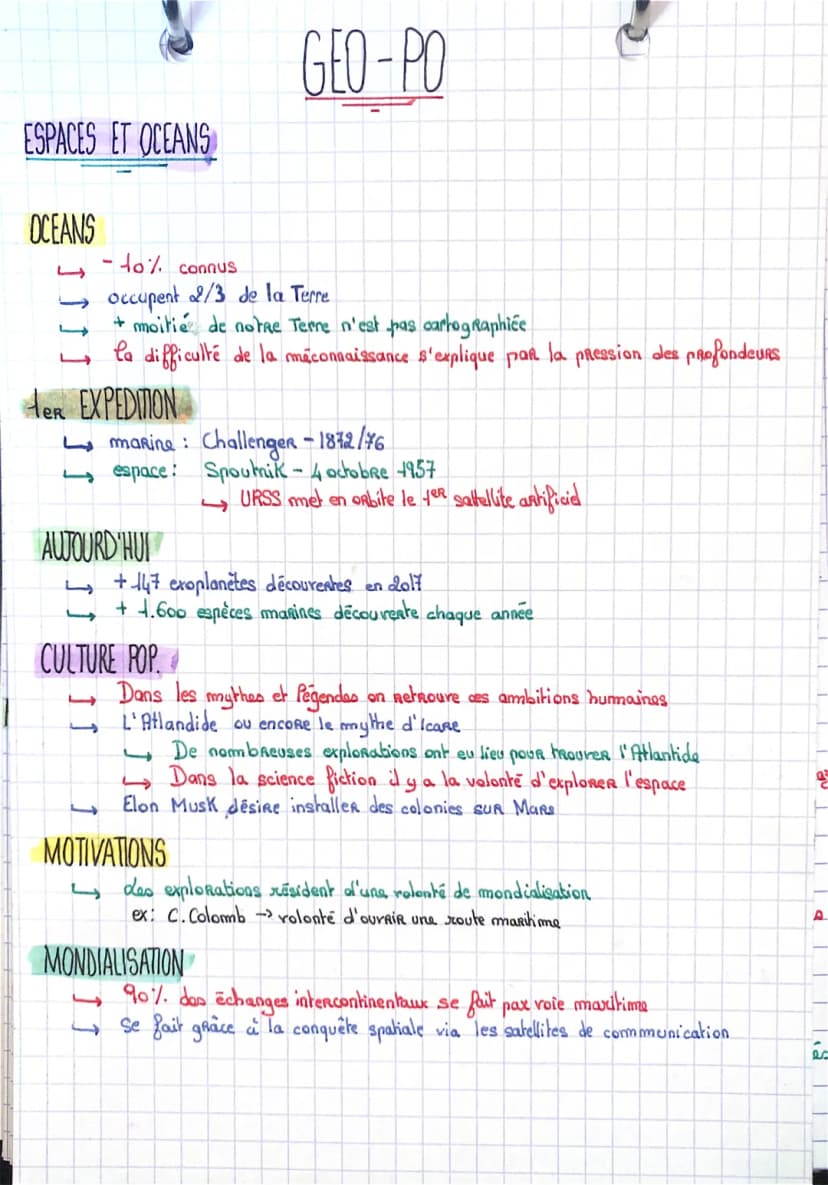 GEO-PO
ESPACES ET OCEANS
OCEANS
↳ - 10% connus
↳ occupent 2/3 de la Terre
↳ + moitié de notre Terre n'est pas cartographiée
↳ la difficulté de la méconnaissance s'explique par la pression des profondeurs
1er EXPEDITION
↳ marine : Challenger - 1872/76
↳ espace : Spoutnik - 4 octobre 1957
↳ URSS met en orbite le 1er sattellite artificiel
AUJOURD'HUI
↳ + 147 exoplanètes découvertes en 2017
↳ + 1.600 espèces marines découverte chaque année
CULTURE POP.
↳ Dans les mythes et légendes on retrouve ces ambitions humaines
↳ L'Atlandide ou encore le mythe d'Icare
↳ De nombreuses explorations ont eu lieu pour trouver l'Atlantide
↳ Dans la science fiction il y a la volonté d'explorer l'espace
↳ Elon Musk désire installer des colonies sur Mars
MOTIVATIONS
↳ des explorations résident d'une volonté de mondialisation
ex: C. Colomb → volonté d'ouvrir une route maritime
MONDIALISATION
↳ 90% des échanges intercontinentaux se fait par voie maritime
↳ se fait grâce à la conquête spatiale via les satellites de communication